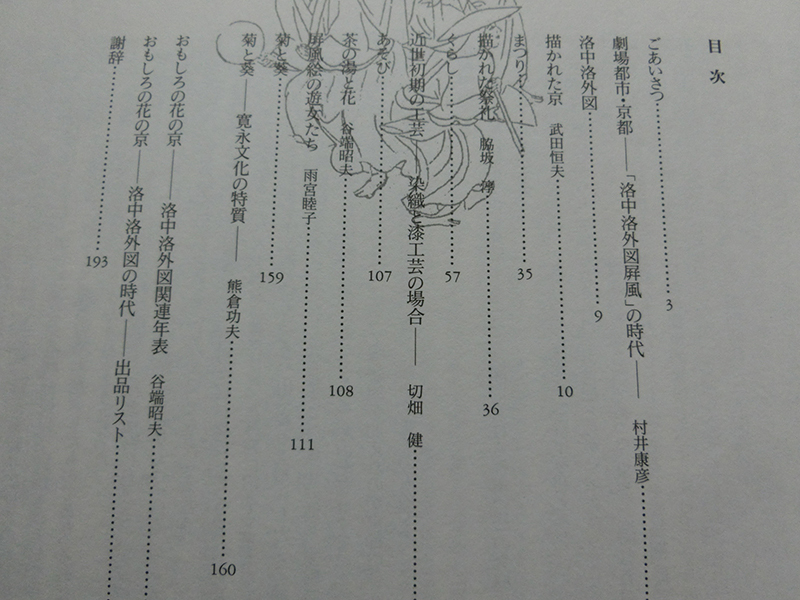 目次
ごあいさつ……3
劇場都市・京都——「洛中洛外図屛風」の時代—— 村井康彦……
洛中洛外図……9
描かれた京 武田恒夫……10
まつり……35
描かれた祭礼 脇坂 淳……36
くらし……57
近世初期の工芸——染織と漆工芸の場合—— 切畑 健……
あそび……107
茶の湯と花 谷端昭夫……108
屛風絵の遊女たち 雨宮睦子……111
菊と葵……159
菊と葵——寛永文化の特質—— 熊倉功夫……160
おもしろの花の京——洛中洛外図関連年表 谷端昭夫……
おもしろの花の京——洛中洛外図の時代——出品リスト……
謝辞……193